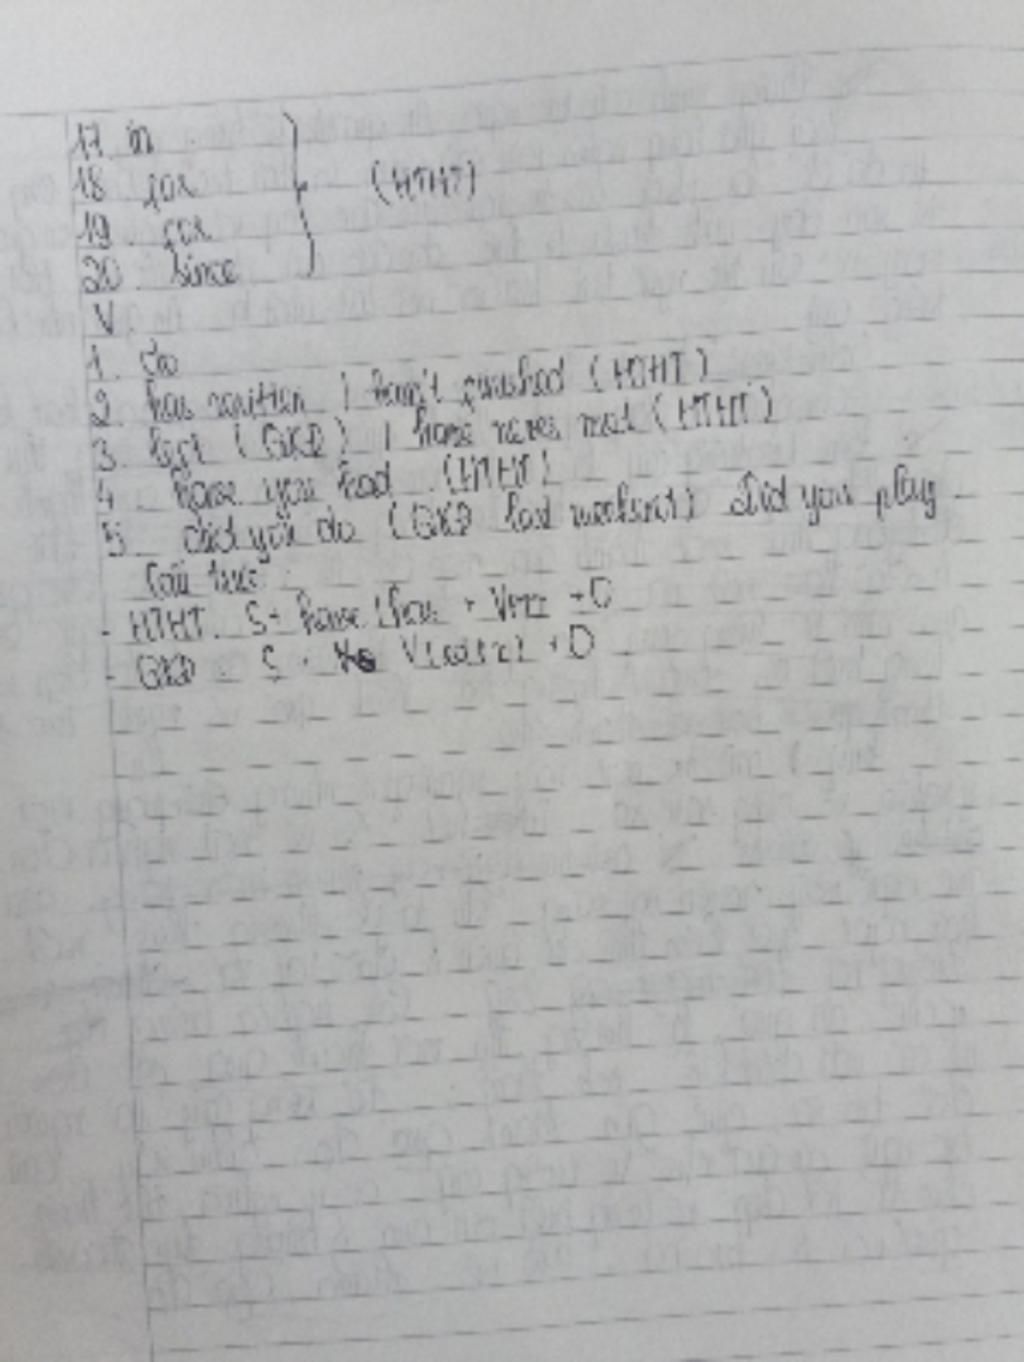 17 in
18 for (HTHT)
19. for
20 since
V
1. Do
2 has written / hasn't finished (HTHT)
3. left (QKĐ) / have never met (HTHT)
4 have you had (HTHT)
5 did you do (QKĐ last weekend) Did you play
- HTHT. S + have / has + VPII + O
- QKĐ . S + V + O